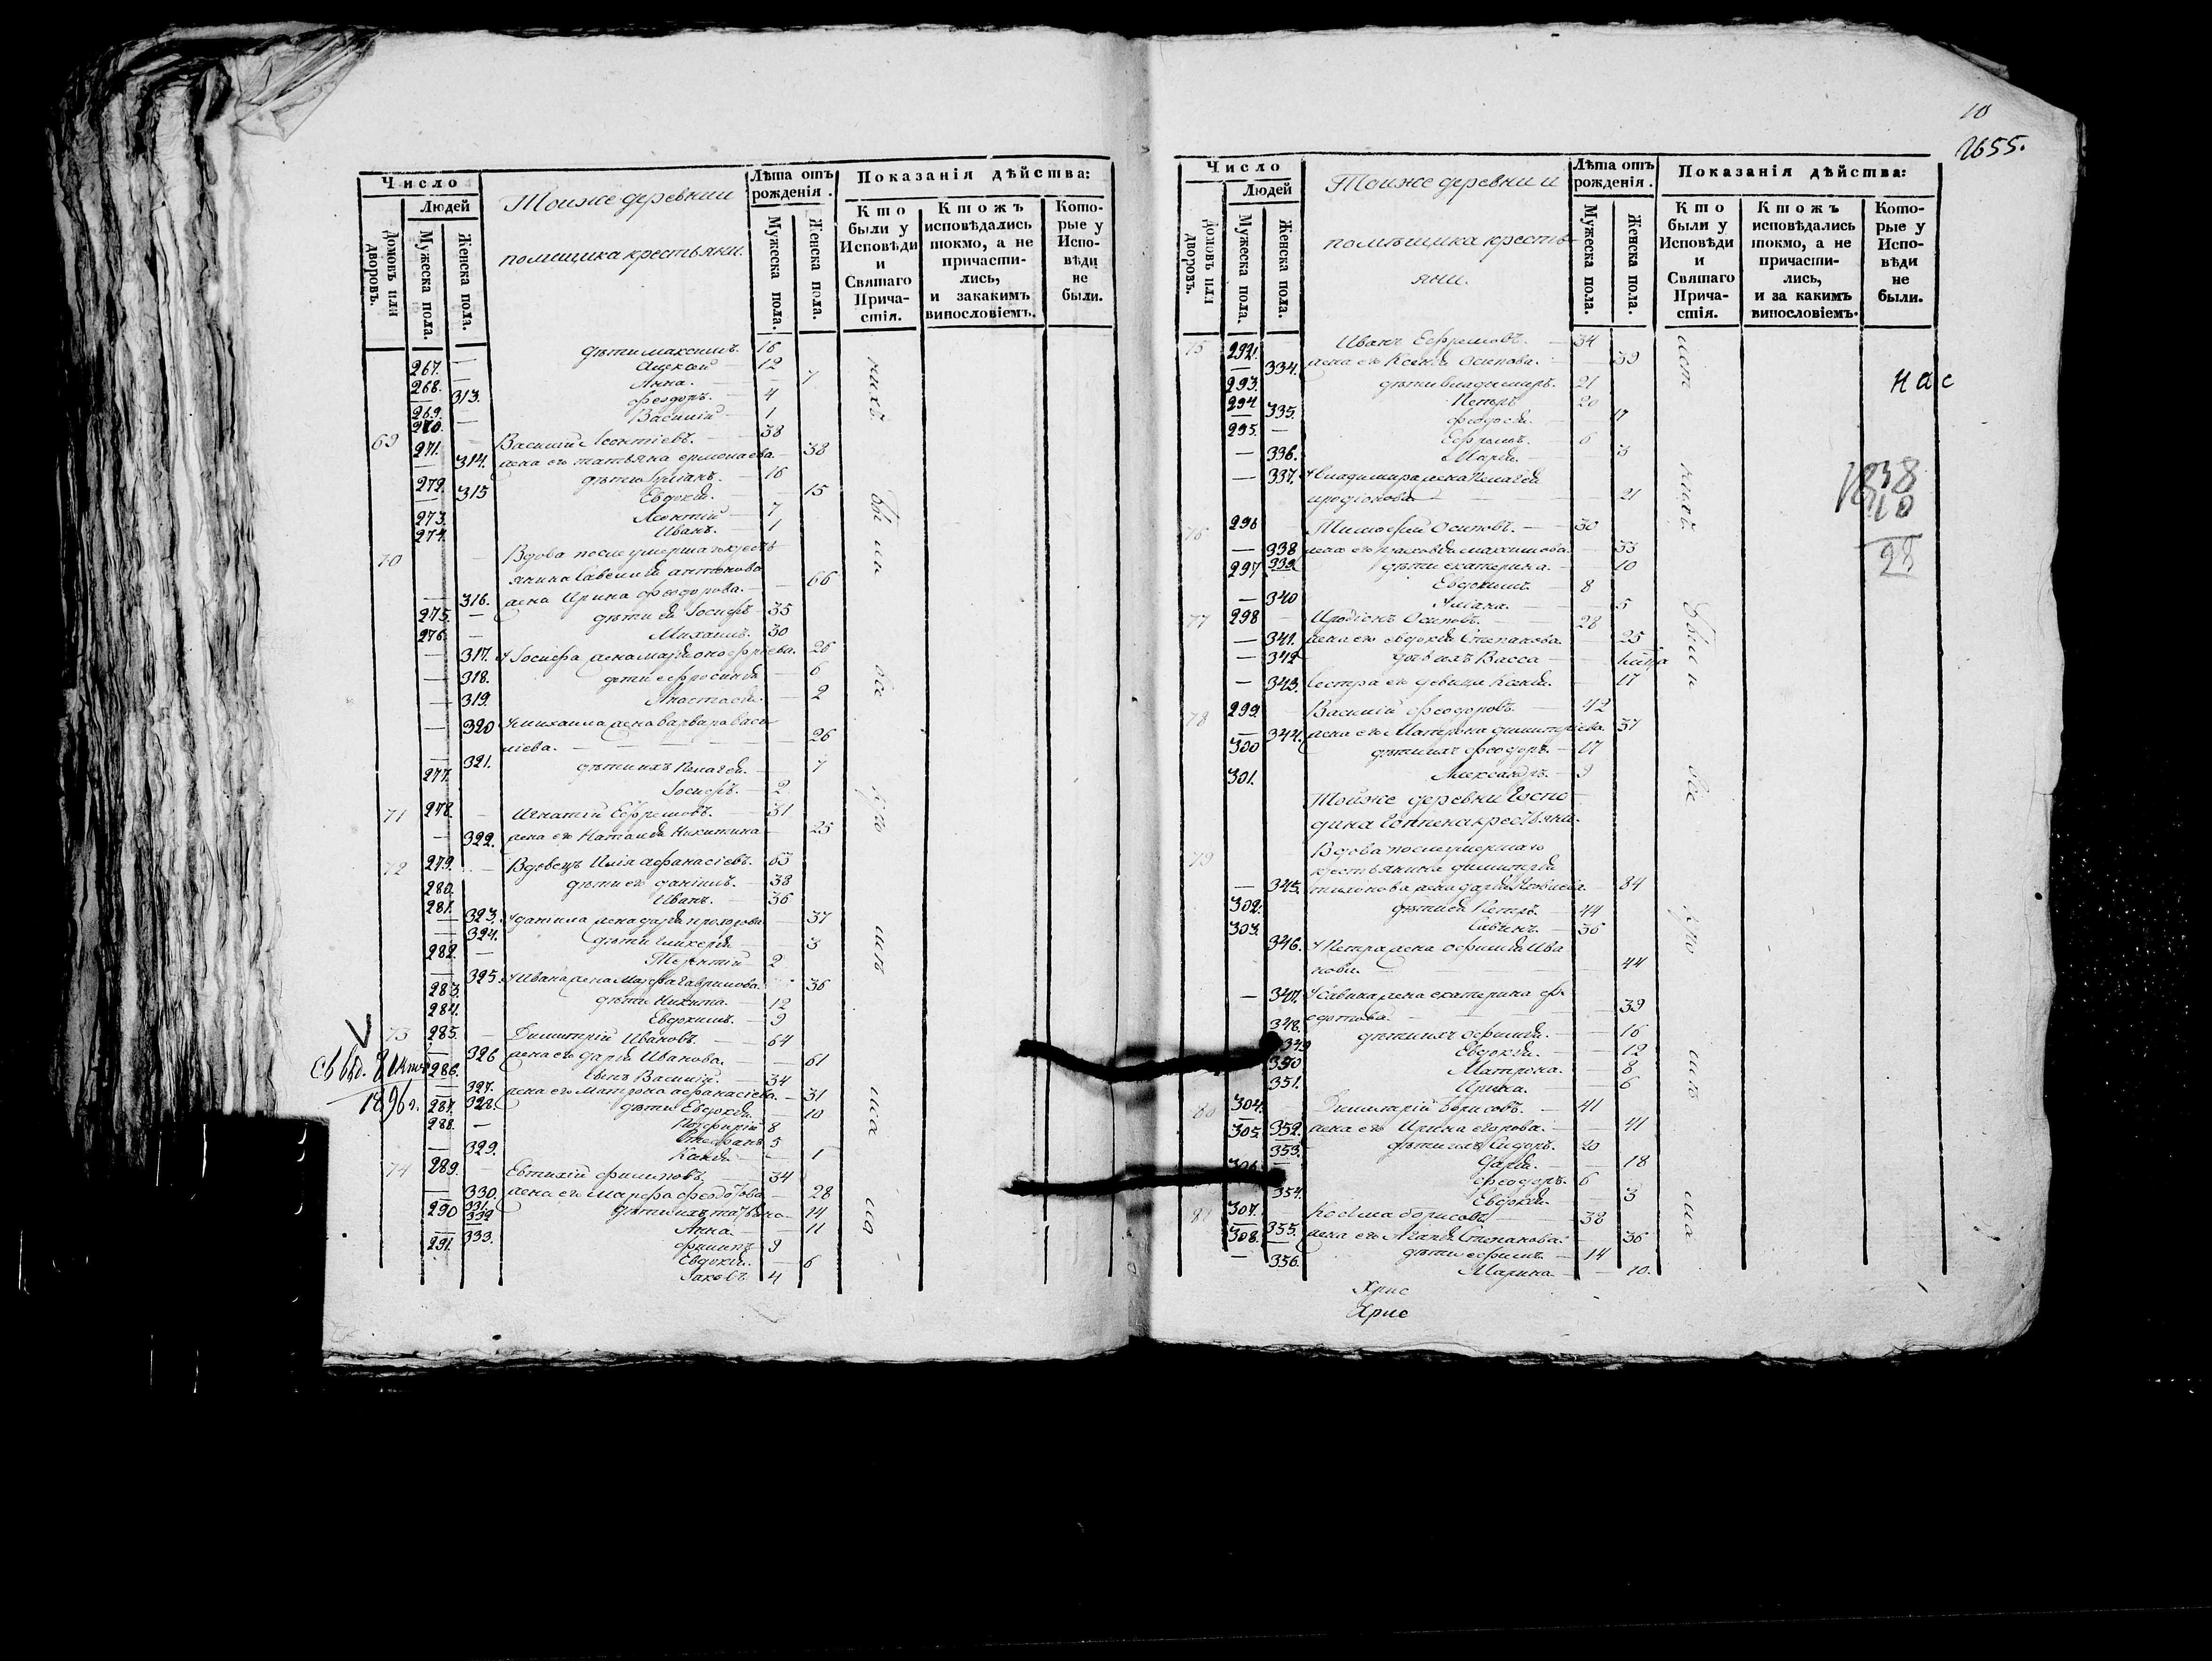 Число
Людей
Домовъ или дворовъ.
Мужеска пола.
Женска пола.
Тойже деревнии
помещика крестьяни.
Лѣта отъ рожденія.
Мужеска пола.
Женска пола.
Показанія дѣйства:
Кто были у Исповѣди и Святаго Причастія.
Ктожъ исповѣдались токмо, а не причастились, и закакимъ винословіемъ.
Которые у Исповѣди не были.
267. — дѣти максимъ. 16
268. — Алексей 12
— 313. Анна. — 7
269. — Феодоръ. 4
270. — Василій 1
69 271. — Василий Леонтіевъ. — 38
— 314. жена его татьяна ермолаева. — 38
272. дѣти 16
— 315 Евдокія. — 15
273. Леонтій 7
274. Иванъ. 1
70 Вдова после умершаго крестьянина Савелия антонова
— 316. жена Ирина феодорова. — 66
275. — дѣти ея Іосифъ 35
276. — Михаилъ. 30
— 317. у Іосифа жена марья онофриева. 26
— 318. дети ефросинья — 6
— 319. Анастасія. — 2
— 320 у михаила жена варвара васи-
лиева. — 26
— 321. дѣти ихъ Пелагея. — 7
277. Іосифъ. — 2
71 278. — Игнатій Ефремовъ. — 31
— 322. жена его Наталья Никитина — 25
72 279. — Вдовецъ Илія афанасіевъ. — 63
280. дѣти его даніилъ. — 38
281. Иванъ. — 36
— 323. у даніила жена дарья прохорова — 37
— 324. дѣти гликерія — 3
282. — Терентій 2
— 325. у Ивана жена Марфа гаврилова. 36
283. дѣти Никита. — 12
284. Евдокимъ. — 9
73 285. — Димитрій Ивановъ. — 64
— 326 жена его дарья Иванова. — 61
286. сынъ Василій. 34
— 327. жена его матрона афанасіева. — 31
— 328. дѣти Евдокія. — 10
287. Порфирій 8
288. — Стефанъ 5
— 329. Ксенія — 1
74 289. — Евтихій филиповъ. — 34
— 330. жена его Марфа феодотова — 28
331. дѣти ихъ татьяна — 14
332 Анна. — 11
290 филиппъ 9
333. Евдокія. — 6
291. Іаковъ. 4
V
1896 г.
нихъ
были
все
кто
ихъ
10
2655.
Число
Людей
Домовъ или дворовъ.
Мужеска пола.
Женска пола.
Тойже деревни и
помѣщика кресть-
яни.
Лѣта отъ рожденія.
Мужеска пола.
Женска пола.
Показанія дѣйства:
Кто были у Исповѣди и Святаго Причастія.
Ктожъ исповѣдались токмо, а не причастились, и за какимъ винословіемъ.
Которые у Исповѣди не были.
75 292. Иванъ Ефремовъ. — 34
— 334. жена его Ксенія Осипова. — 39
293. дѣти владимиръ. 21
294 Петръ 20
— 335. феодосія. — 17
295. — Ефремъ. — 6
— 336. Марія. — 3
— 337. у владимира жена Пелагея
иродіонова — 21
76 296 Тимофей Осиповъ. — 30
— 338 жена его максимова. — 33
339 дѣти екатерина. — 10
297 Евдокимъ. — 8
— 340 — 5
77 298 — Иродіонъ Осиповъ. — 28
— 341. жена его евдокія Степанова. — 25
— 342 дочь ихъ Васса —
— 343. Сестра его девица Ксенія. — 17
78 299. — Василій Феодоровъ. — 42
— 344. жена его Матрона димитріева. 37
300 дѣти ихъ феодоръ. — 17
301. Александръ. — 9
Тойже деревни госпо-
дина крестьяни.
79 Вдова после умершаго
крестьянина димитрія
— 345. тихонова жена дарья — 84
302. дѣти ея Петръ. — 44
303. Савинъ. — 36
346. у Петра жена Ива-
нова. — 44
— 347. у Савина жена екатерина — 39
348. дѣти ихъ — 16
349 Евдокія. — 12
350 Матрона. — 8
351. Ирина. — 6
80 304. — Димитрій борисовъ. — 41
— 352. жена его Ирина егорова. — 41
305. дѣти ихъ Сидоръ. 20
353. Дарья. — 18
306. феодоръ. 6
354. Евдокія. — 3
81 307. Косма борисовъ — 38
355. жена его Степанова. — 36
308. дѣти ефимъ. — 14
— 356. Марина — 10.
нихъ
были
все
кто
ихъ
нас
1838
1810
28
Хрис
Хрис